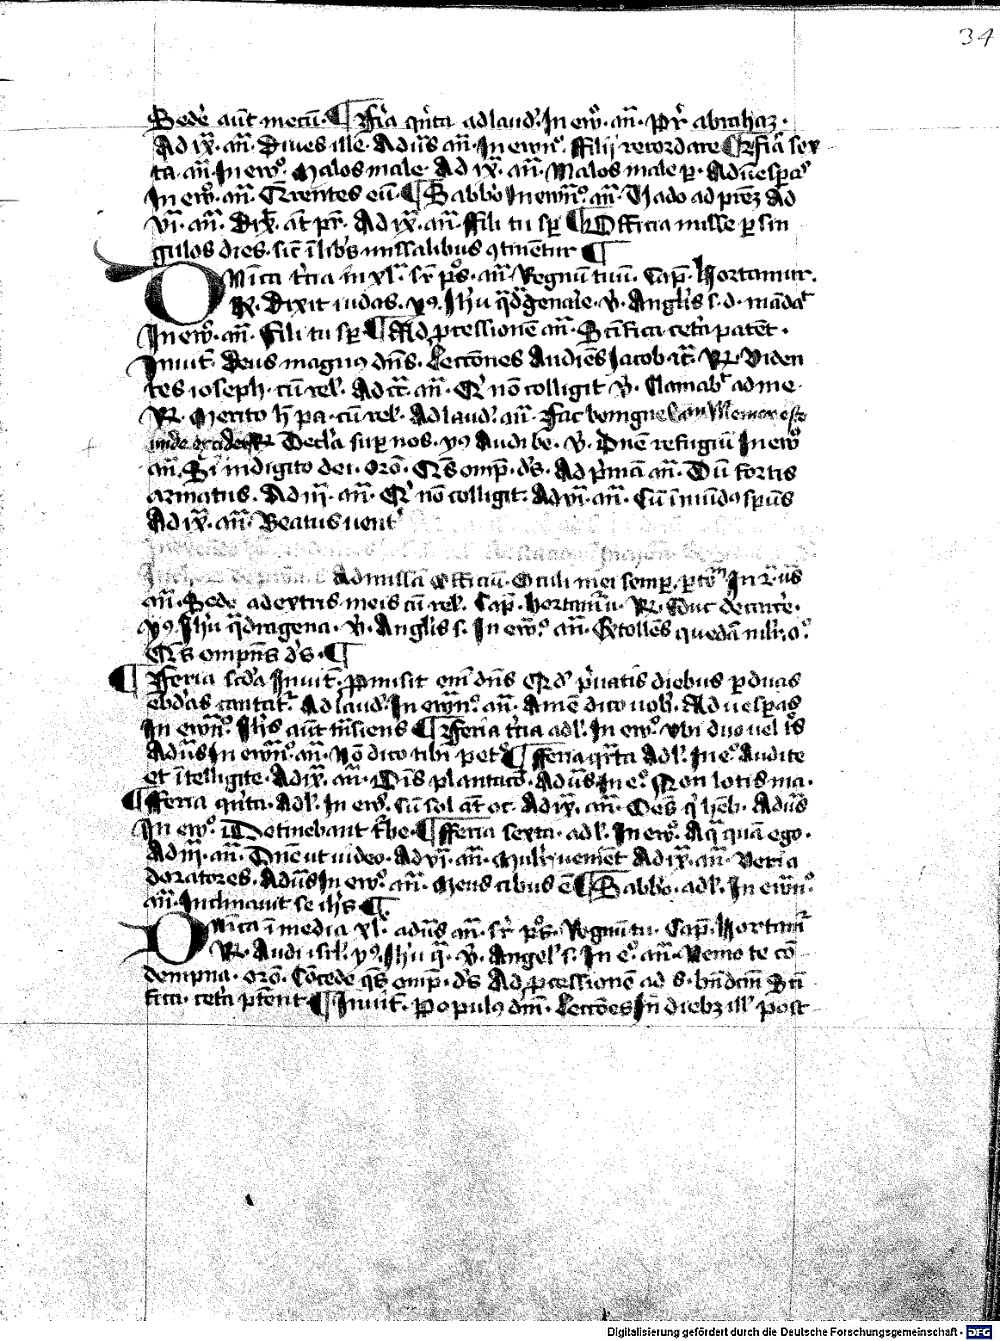 34
Sede aut̄ mecū · ¶ Fr̄ia qⁱnta ad laud̕. In ew̄ᵒ. an̄. Pr̄ abrahaz ·
Ad ix̄. an̄. Diues ille. Ad ūs an̄. In ewn̄ᵒ. ffilij recordare ¶ fr̄ia sex
ta an̄. In ewᵒ. Malos male. Ad ix̄. an̄. Malos male p. Ad uesp̄as
In ewᵒ. an̄. Qrentes eū. ¶ Sabb̄o In ewn̄ᵒ. an̄. Vado ad p̄rez Ad
vī. an̄. Dix̄. at̄ pr̄. Ad ix̄. an̄. ffili tu sp̄ ¶ Officia misse p sin
gulos dies. sic̄ ī libris missalibus ꝯtinētur ¶
Dn̄ica t̄cia in xl̕. sr̄ pˢ. an̄. Regnū tuū. Cap̄. Hortamur.
R̄. Dixit iudas. yꝰ. Ih̄u q̄dragenarie. v̄. Angl̄is s. d. mādat̄
In ewᵒ. an̄. Fili tu sp̄ ¶ Ad ꝓcessionē an̄. Sc̄ifica cet̄a patēt.
Inuit̄. Deus magnus dn̄s. Lectōnes Audiēs Jacob ic̄. R̄. Viden
tes ioseph. cū rel̕. Ad c̄t. an̄. Qⁱ nō colligit v̄. Clamab̄t ad me
R̄. Merito h̄ pa. cū rel̕. Ad laud̕. an̄. Fac benigne Cap̄ Memor esto
unde excideris R̄ Decl̄a sup̄ nos. yꝰ Audi be. v̄. Dn̄e refugiū In ewᵒ
an̄. Si in digito dei. orō. Qˢ omp̄. d̄s. Ad p̄mā an̄. Dū fortis
armatus. Ad iij. an̄. Qⁱ nō colligit. Ad vī. an̄. Cū īmūdus sp̄us
Ad ix̄. an̄. Beatus uent̄
Ad missā Officiū. Oculi mei semper. In ij. vs̄
an̄. Sede a dextris meis cū rel̕. Cap̄. Hortam̄. R̄. Educ de carce.
yꝰ. Ih̄u q̄dragena. v̄. Angl̄is s. In ewᵒ. an̄. Extollēs quedā mlr̄. oᵒ.
Qˢ omp̄n̄s d̄s. ¶
¶ Feria sc̄da Inuit̄. P̄misit eni dn̄s Qd̄ p̄uatis diebus p duas
ebd̄as cantat̄. Ad laud̕. In ewn̄ᵒ. an̄. Amē dico uob̄. Ad uesperas
In ewn̄ᵒ. Ih̄s aut̄ trāsiens ¶ Feria t̄cia ad l̕. In ewᵒ. Vbi duo uel t̄s
Ad ūs In ewn̄ᵒ. an̄. Nō dico tibi pet̄ ¶ fferia qr̄ta Ad l̕. In eᵒ. Audite
et ītelligite. Ad ix̄. an̄. Oīs plantacō. Ad ūs In eᵒ. Non lotis ma.
¶ fferia qⁱnta. Ad l̕. In ewᵒ. Cū sol at̄ oc. Ad ix̄. an̄. Oēs qⁱ h̄eb. Ad ūs
In ewᵒ. Detinebant t̄be. ¶ fferia sexta. ad l̕. In ewᵒ. Aq̄ quā ego.
Ad iij. an̄. Dn̄e ut uideo. Ad vī. an̄. Mulr̄ ueniet Ad ix̄. an̄. Veri a
doratores. Ad ūs In ewᵒ. an̄. Meus cibus ē ¶ Sabb̄o. ad l̕. In ewn̄ᵒ.
an̄. Inclinauit se ih̄s ¶
Dn̄ica ī media xl̕. ad ūs an̄. sr̄ pˢ. Regnū tu. Cap̄. Hortam̄
R̄. Audi isrl̕. yꝰ. Ih̄u q̄. v̄. Angel̕ s. In eᵒ. an̄. Nemo te cō
dempna. orō. Cōcede qˢ omp̄. d̄s. Ad ꝓcessionē ad s. bn̄dcm̄ Sc̄i
fica. cet̄a pt̄ent ¶ Inuit̄. Populus dn̄i. Lectōes In diebz ill̕ post
Digitalisierung gefördert durch die Deutsche Forschungsgemeinschaft - DFG